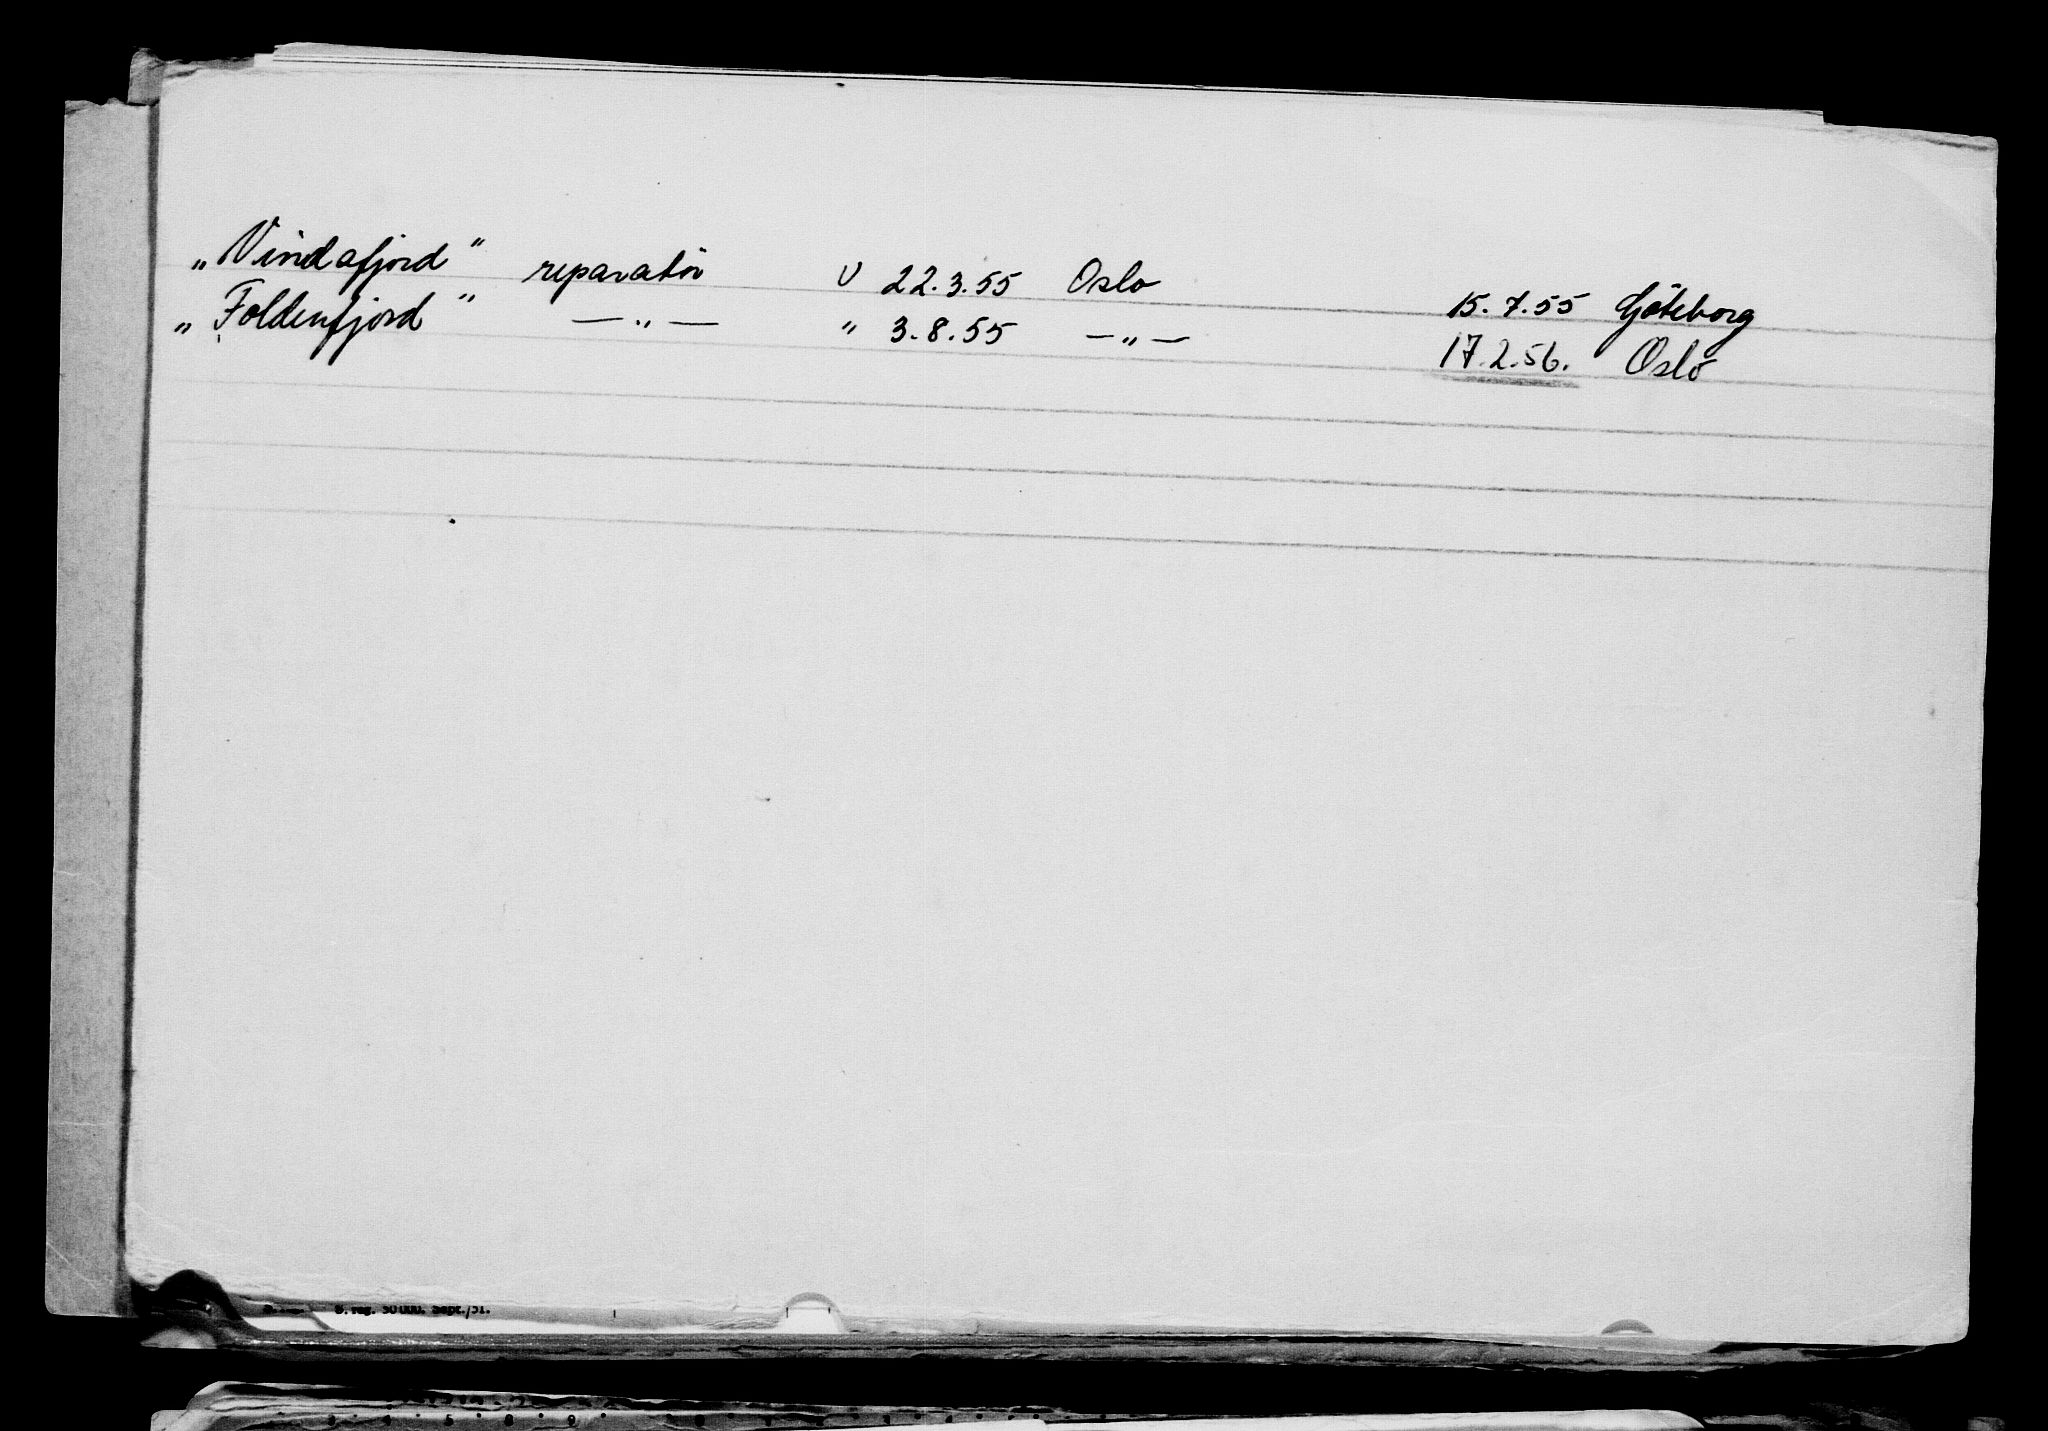 „Vindafjord" reparatør U 22.3.55 Oslo 15.7.55 Göteborg
„Foldenfjord" —„— " 3.8.55 —„— 17.2.56. Oslo
S. reg. 50 000. Sept./51.